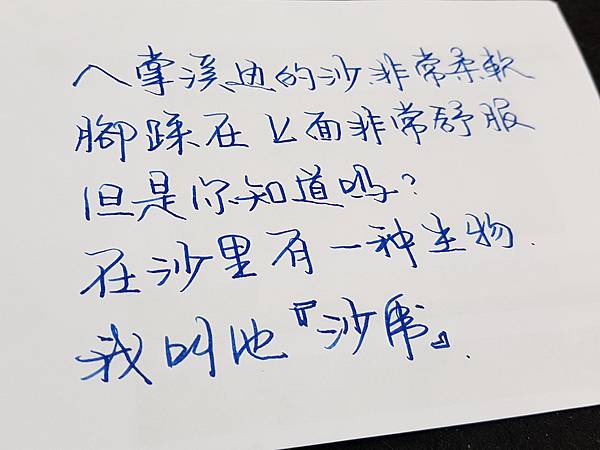 八掌溪边的沙非常柔軟
腳踩在上面非常舒服
但是你知道吗?
在沙里有一种生物.
我叫他『沙虎』.